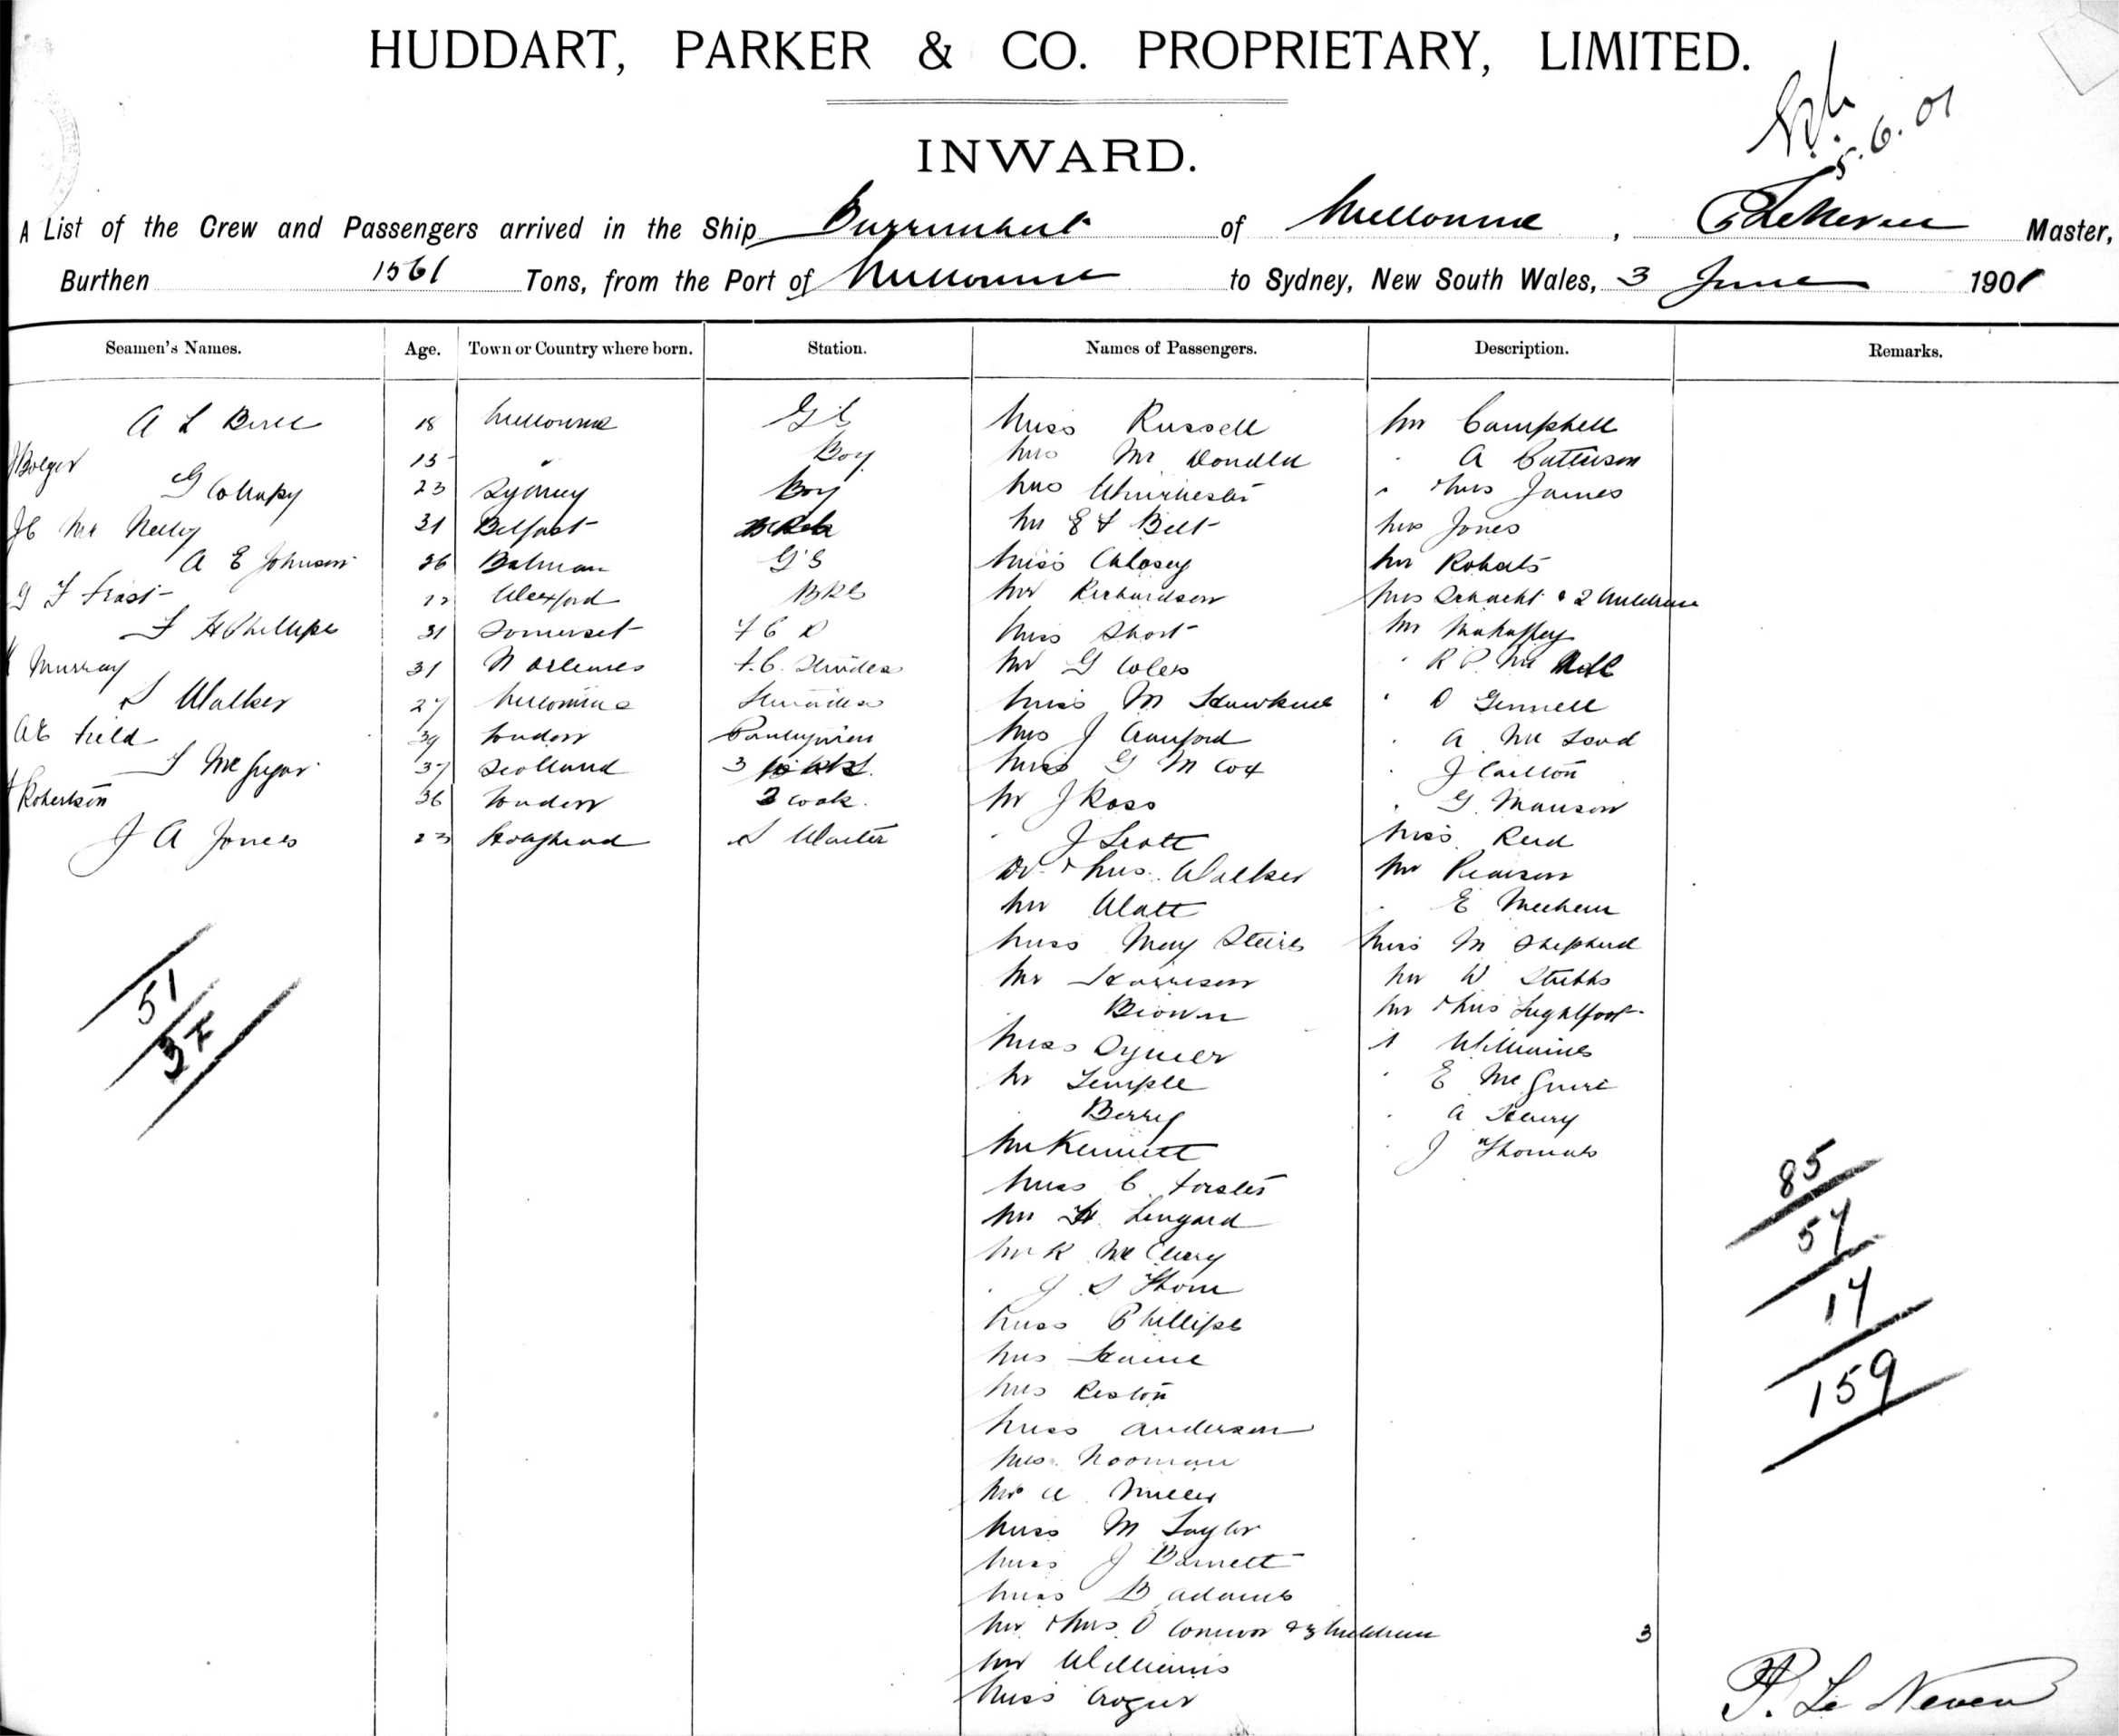 HUDDART, PARKER & CO. PROPRIETARY, LIMITED.
INWARD.
5.6.01
A List of the Crew and Passengers arrived in the Ship Burrumbeet of Melbourne, P Le Neveu Master,
Burthen 1561 Tons, from the Port of Melbourne to Sydney, New South Wales, 3 June 1901
Seamen's Names. Age. Town or Country where born. Station. Names of Passengers. Description. Remarks.
A L 18 Melbourne GS Miss Russell Mr Campbell
J Bolger 15 " Boy Mrs Mc Donald " A Patterson
G 23 Sydney Boy Mrs Winchester " & Mrs James
J C Mc Neilly 31 Belfast Mr E J Belt Mrs Jones
A E Johnson 26 Balmain GS Miss Mr Roberts
G F Frost Wexford BRS Mr Richardson Mrs Schacht & 2 Children
F H Phillips 31 Somerset F C Miss Short Mr Mahaffey
Murray 31 N Orleans F.C. Mr G Coles " R P Mc
S Walker 27 Melbourne Miss M Hawkins " D Gennell
A E Field 39 London Pantryman Mrs J Cranford " A Mc Leod
J McGregor 37 Scotland 3 Miss G M Cox " J Carlton
Robertson 36 London 2 Cook. Mr J Ross " G. Manson
J A Jones 23 Holyhead S Waiter " J Scott Miss Reid
Dr & Mrs. Walker Mr Pearson
Mr Watt " E Meehan
Miss May Steirs Miss M Shepherd
Mr Harrison Mr W Stubbs
" Brown Mr & Mrs Lightfoot
Miss Dymer " Williams
Mr Temple " E McGuire
" Berry " A Henry
Mr Kennett " J Thomas
Miss C Forster
Mr H. Lingard
Mr R McCleary
" J S Thom
Miss Phillips
Mrs Haine
Mrs Reston
Miss Anderson
Mrs. Nooman
Mr A Miller
Miss M Taylor
Miss J Barnett
Miss B Adams
Mr & Mrs O Connor & 3 Children 3
Mr Williams
Miss Crozier
51
85
57
17
159
P. Le Neveu